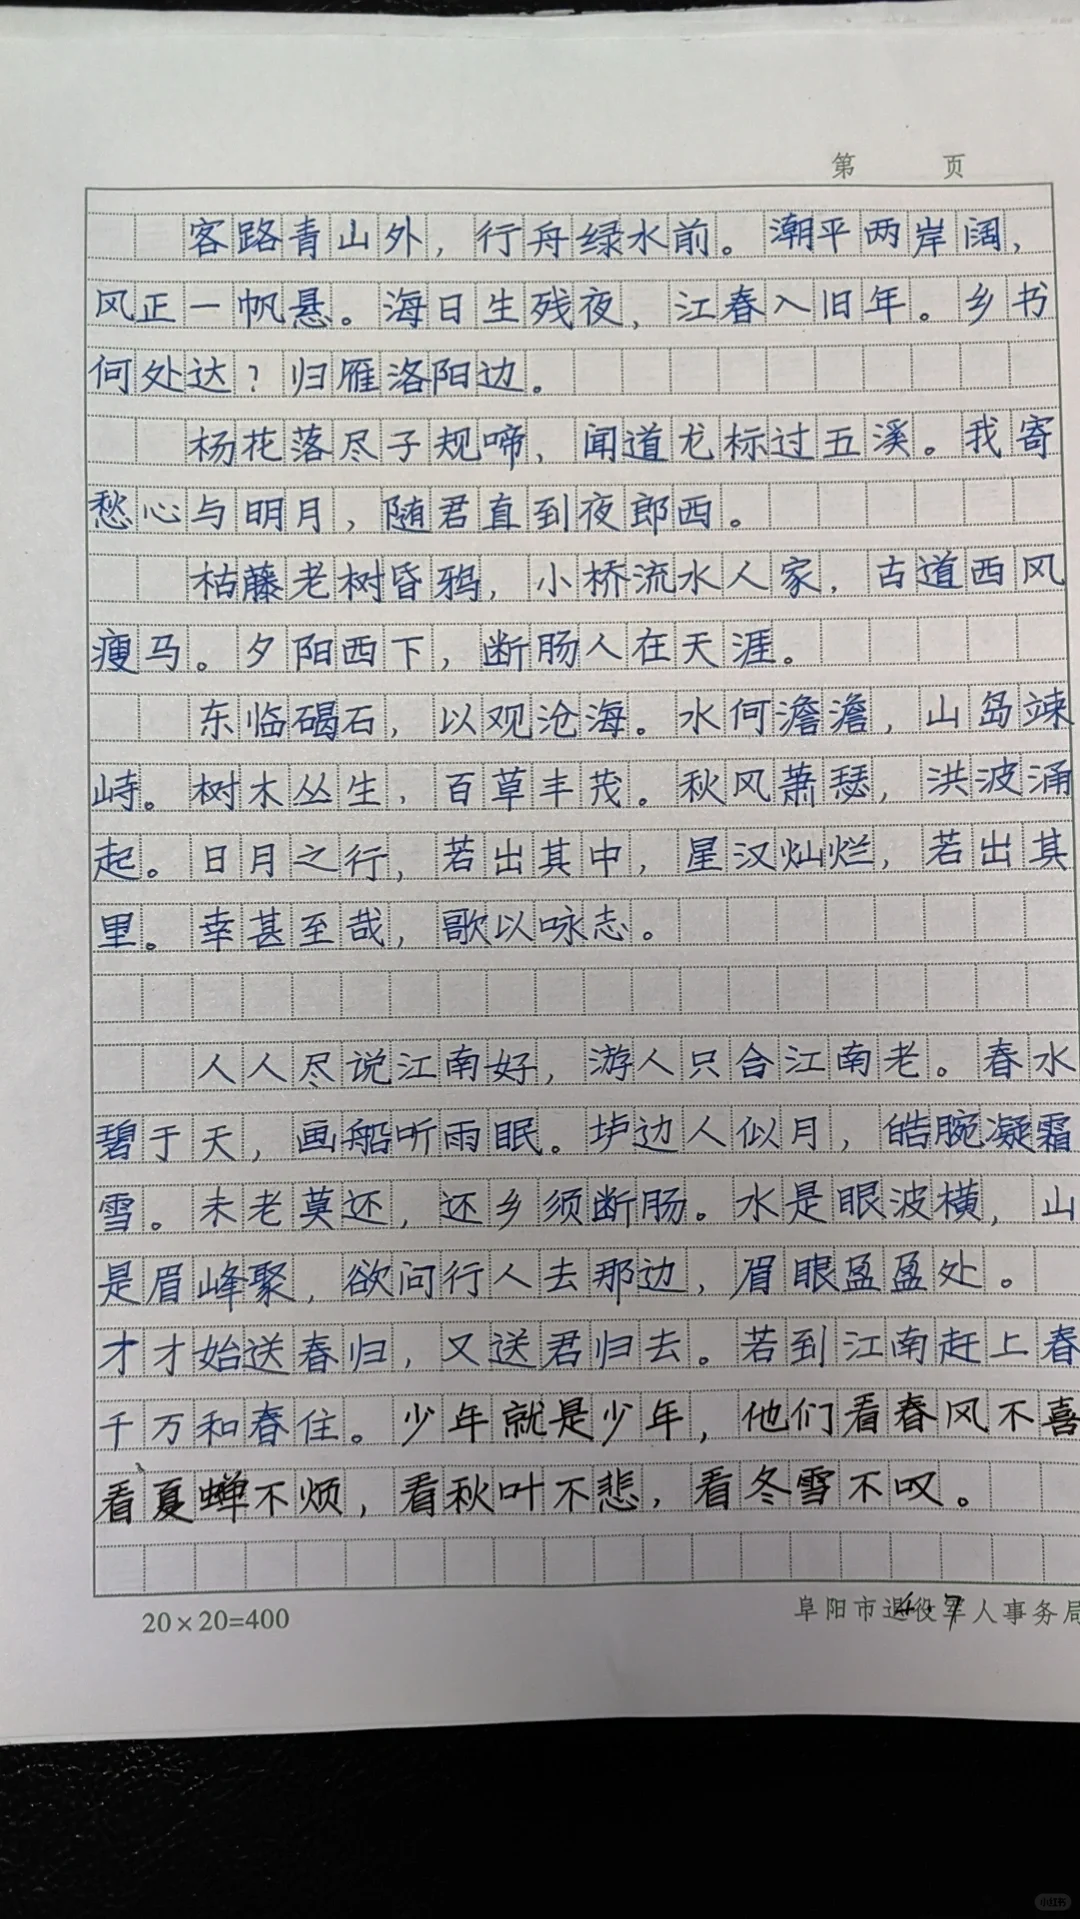 第 页
客路青山外，行舟绿水前。潮平两岸阔，
风正一帆悬。海日生残夜，江春入旧年。乡书
何处达？归雁洛阳边。
杨花落尽子规啼，闻道龙标过五溪。我寄
愁心与明月，随君直到夜郎西。
枯藤老树昏鸦，小桥流水人家，古道西风
瘦马。夕阳西下，断肠人在天涯。
东临碣石，以观沧海。水何澹澹，山岛竦
峙。树木丛生，百草丰茂。秋风萧瑟，洪波涌
起。日月之行，若出其中，星汉灿烂，若出其
里。幸甚至哉，歌以咏志。
人人尽说江南好，游人只合江南老。春水
碧于天，画船听雨眠。垆边人似月，皓腕凝霜
雪。未老莫还，还乡须断肠。水是眼波横，山
是眉峰聚，欲问行人去那边，眉眼盈盈处。
才才始送春归，又送君归去。若到江南赶上春
千万和春住。少年就是少年，他们看春风不喜
看夏蝉不烦，看秋叶不悲，看冬雪不叹。
20×20=400
阜阳市退役军人事务局
小红书